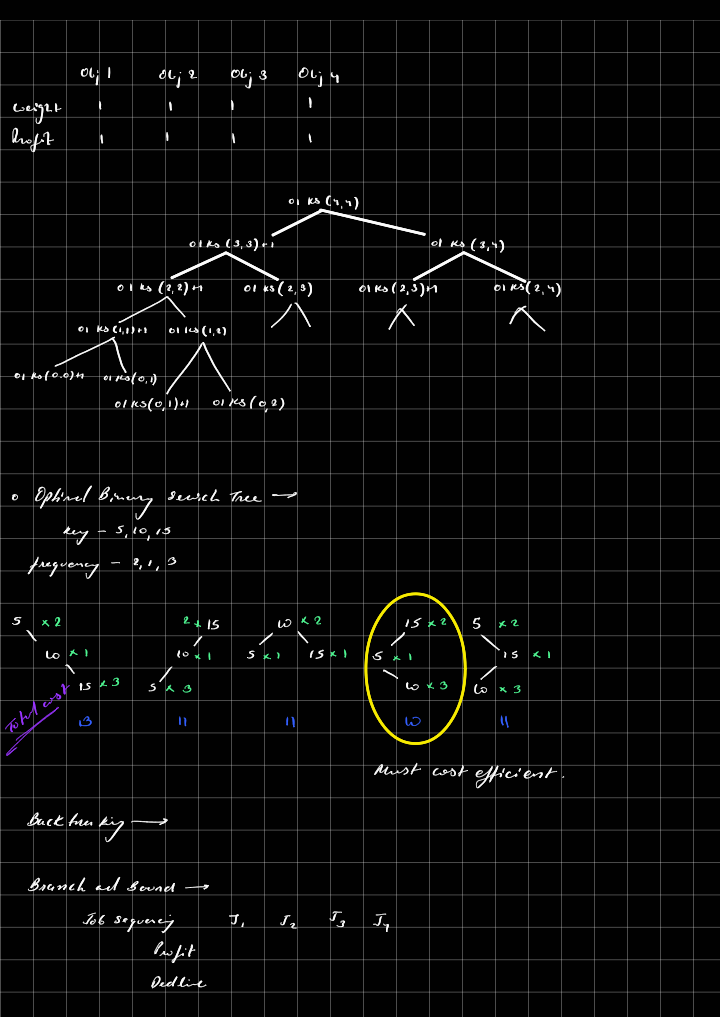 Obj 1 Obj 2 Obj 3 Obj 4
weight 1 1 1 1
Profit 1 1 1 1
01 KS (4,4)
01 KS (3,3)+1 01 KS (3,4)
01 KS (2,2)+1 01 KS (2,3) 01 KS (2,3)+1 01 KS (2,4)
01 KS (1,1)+1 01 KS (1,2)
01 KS (0,0)+1 01 KS (0,1)
01 KS (0,1)+1 01 KS (0,2)
o Optimal Binary Search Tree →
key - 5, 10, 15
frequency - 2, 1, 3
5 × 2 2 × 15 10 × 2 15 × 2 5 × 2
10 × 1 10 × 1 5 × 1 15 × 1 5 × 1 15 × 1
15 × 3 5 × 3 10 × 3 10 × 3
Total cost 13 11 11 10 11
Most cost efficient.
Back tracking →
Branch and Bound →
Job sequencing J1 J2 J3 J4
Profit
Dedline